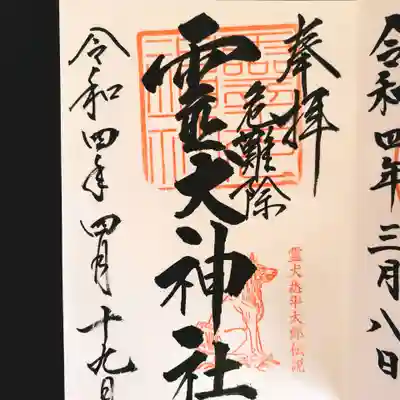 令和四年三月八日
奉拝
危難除
霊犬神社
霊犬悉平太郎伝説
令和四年四月十九日